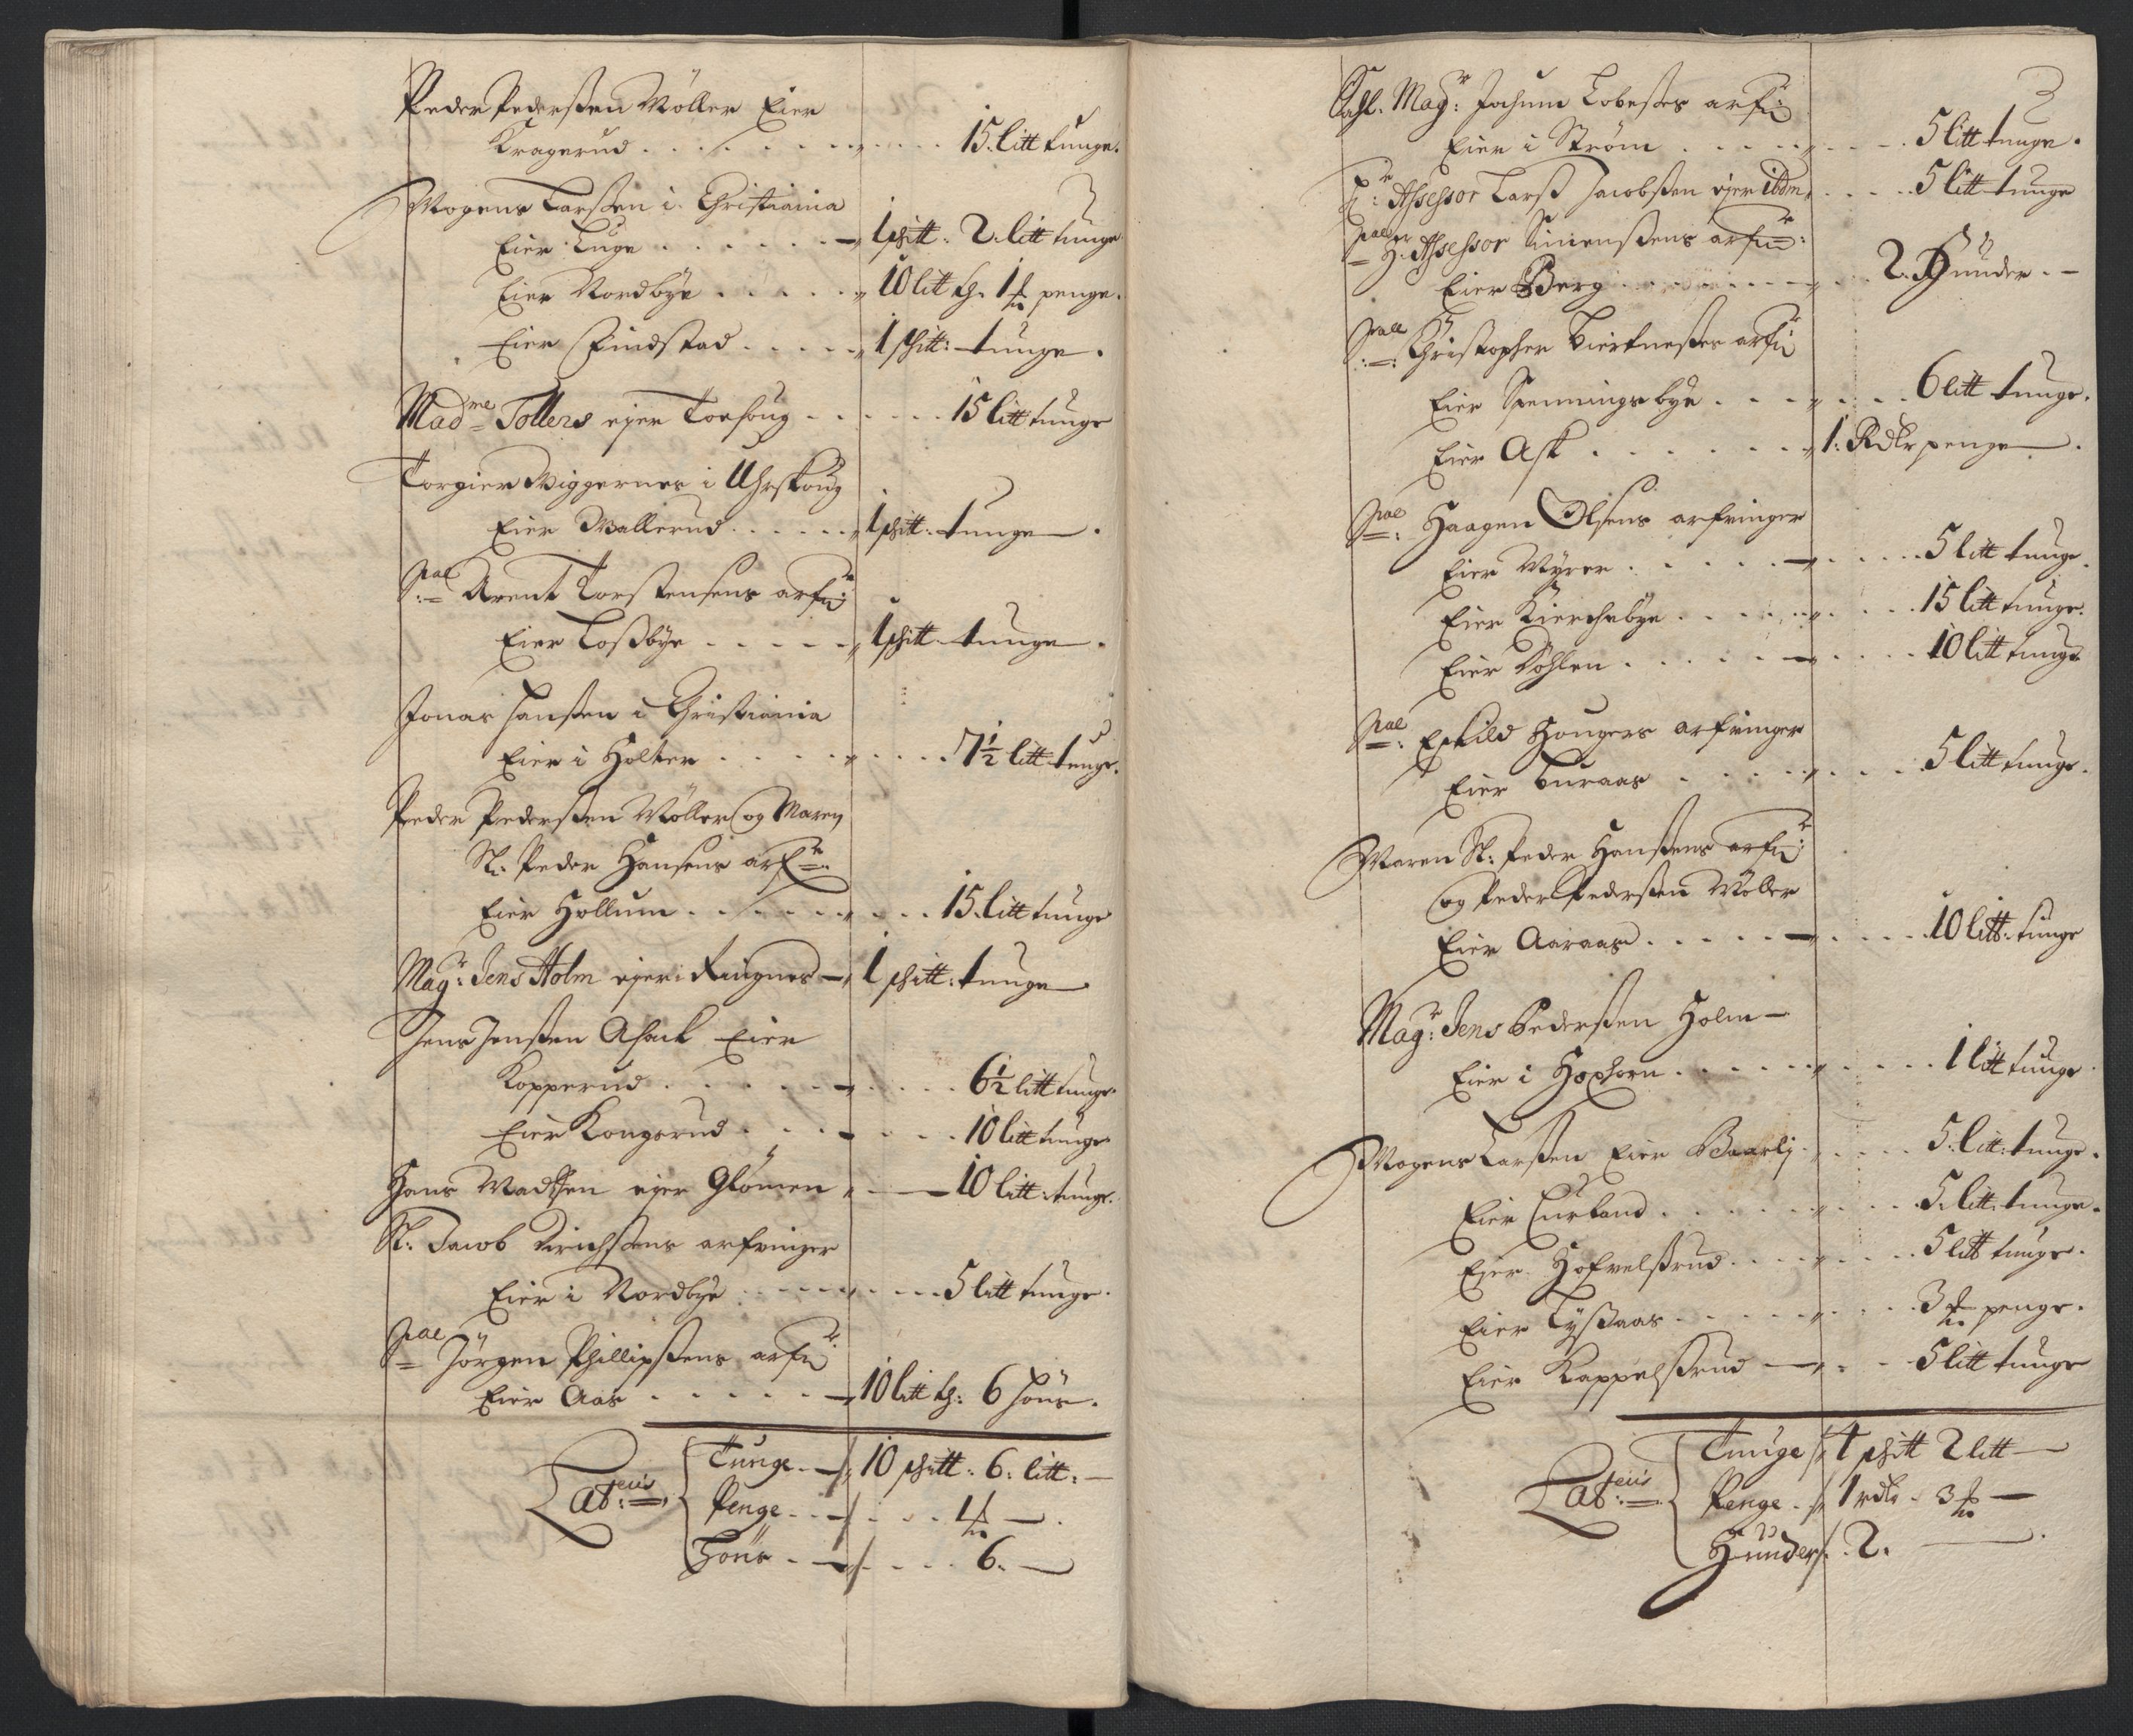 Peder Pederßen Möller Eier
Kragerud . . . . . . . 15. litt tunge.
Mogens Larßen i Christiania
Eier Luge . . . . . . 1 schitt: 2. litt tunge
Eier Nordbye . . . . . 10 litt tg. 1 penge.
Eier Findstad . . . . . 1 schitt: tunge.
Madme Tollers ejer Torshoug . . . . . 15 litt tunge
Torgier Wiggernes i Uhrskoug
Eier Wallerud . . . . . 1 schitt: tunge.
Sal Arent Torstensens arf:
Eier Loßbye . . . . . 1 schitt tunge.
Jonas Hanßen i Christiania
Eier i Holter . . . . . . . 7½ litt tunge.
Peder Pederßen Möller og Maren
Sl: Peder Hansens arf
Eier Hollum . . . . . . . 15. litt tunge
Magr: Jens Holm ejer i Ringnes 1 schitt: tunge
Jens Jenßen Ahsack Eier
Kopperud . . . . . . . 6½ litt tunge.
Eier Kongsrud . . . . . . 10 litt tunge
Hans Madsen ejer Glomen 10 litt: tunge.
Sl: Jacob Dirichsens arfvinger
Eier i Nordbye . . . . . . . 5 litt tunge.
Sal Jörgen Phillipßens arf
Eier Aas . . . . . . 10 litt tg: 6 höns.
Tunge . . 10 schitt: 6: litt:
Lateris Penge . . . . . 1
Höns . . . . . 6.
Sahl. Magr: Jochum Lobeßes arf
Eier i Ström . . . . . . 5 litt tunge.
Hr: Assessor Larß Jacobßen ejer ibdm . . . 5 litt tunge
Sal Hr. Assessor Simenßens arf:
Eier Berg . . . . . . . 2. Hunder.
Sall Christopher Bierkneßes arf
Eier Spenningsbye . . . . . . 6 litt tunge.
Eier Ask . . . . . . . 1. Rdlr penge.
Sal: Haagen Olsens arfvinger
Eier Myrer . . . . . . . 5 litt tunge.
Eier Kierchebye . . . . . . . 15 litt tunge.
Eier Döhlen . . . . . . . 10 litt tunge
Sal: Eskild Hougers arfvinger
Eier Buraas . . . . . . . 5 litt tunge.
Maren Sl: Peder Hanßens arf:
og Peder Pederßen Möller
Eier Aaraas . . . . . . . 10 litt: tunge
Magr: Jens Pederßen Holm
Eier i Hoxhorn . . . . . . . 1 litt tunge.
Mogens Larßen Eier Baarli . . . . 5. litt: tunge.
Eier Curland . . . . . . . 5. litt: tunge.
Eier Hofvelßrud . . . . . . 5 litt tunge.
Eier Tyßaas . . . . . . . 3 penge.
Eier Kappelßrud . . 5 litt tunge
Tunge 4 schitt 2 litt
Lateris Penge . . 1 rdlr . 3
Hunder . 2.